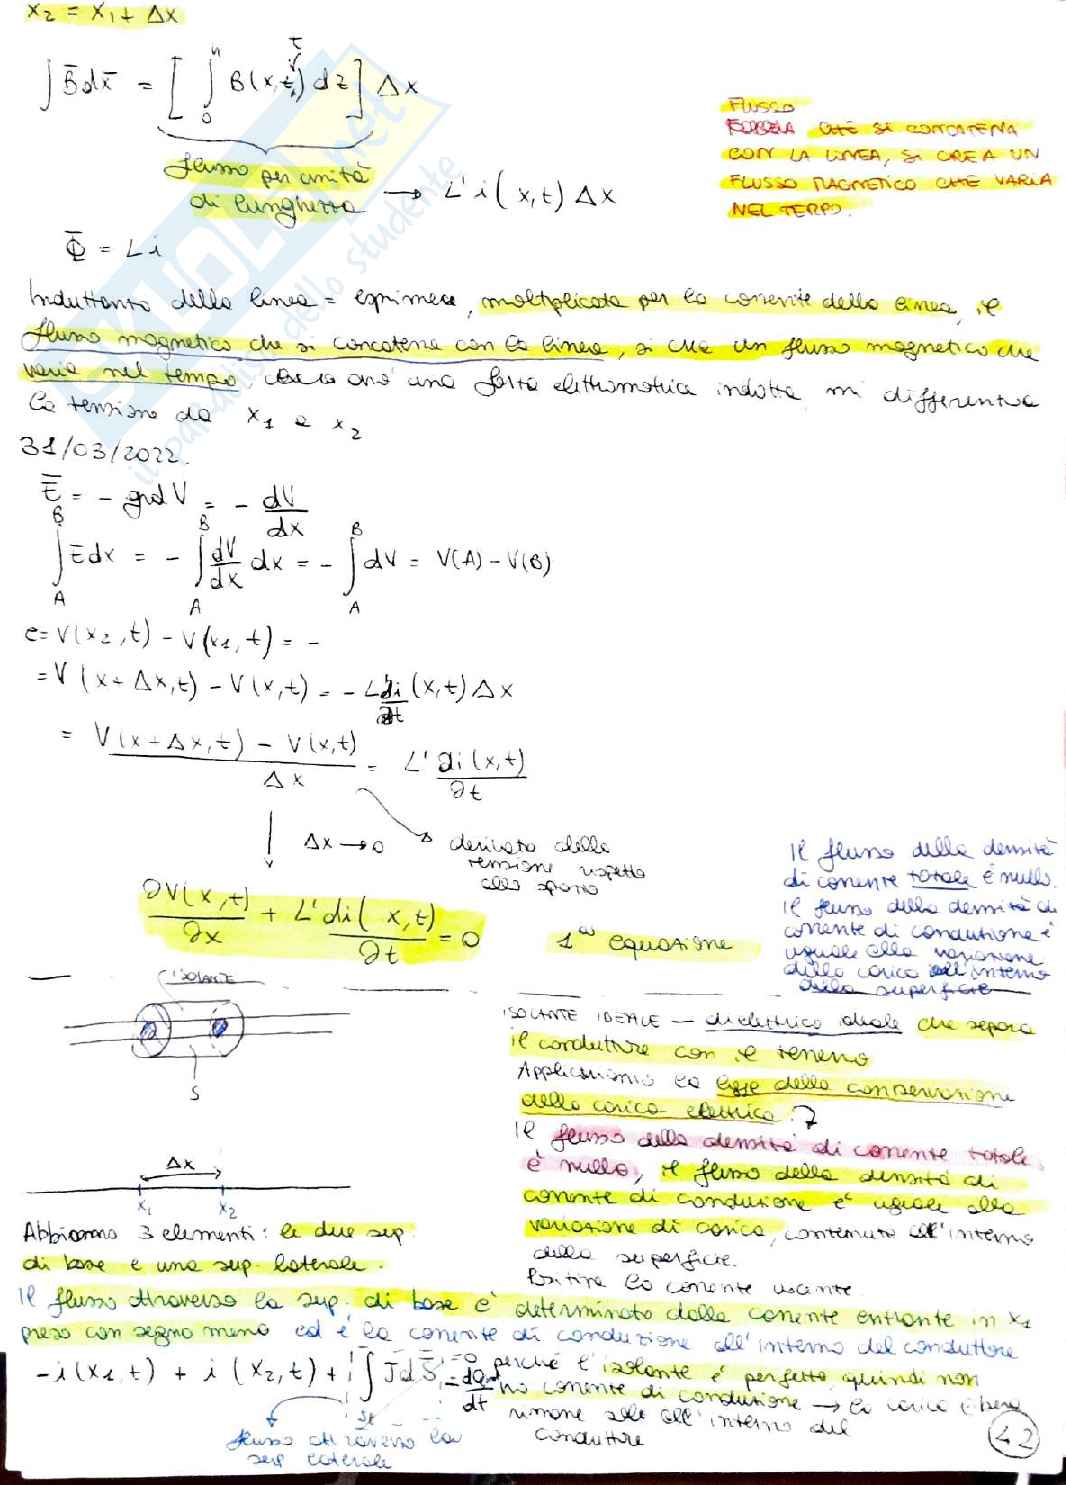 x₂ = x₁ + Δx
∫ B̄ dx̄ = [ ∫₀ʰ B(x,z,t) dz ] Δx
flusso per unità
di lunghezza → L' i(x,t) Δx
FLUSSO
CHE SI CONCATENA
CON LA LINEA, SI CREA UN
FLUSSO MAGNETICO CHE VARIA
NEL TEMPO.
Φ = Li
Induttanza della linea = esprimere, moltiplicata per la corrente della linea, il
flusso magnetico che si concatena con la linea, si crea un flusso magnetico che
varia nel tempo, una forza elettromotrice indotta, mi differenzia
la tensione da x₁ a x₂
31/03/2022.
Ē = - grad V = - dV/dx
∫_A^B Ē dx = - ∫_A^B dV/dx dx = - ∫_A^B dV = V(A) - V(B)
e = V(x₂,t) - V(x₁,t) = -
= V(x + Δx,t) - V(x,t) = - L' ∂i/∂t (x,t) Δx
= V(x + Δx,t) - V(x,t) / Δx = L' ∂i(x,t)/∂t
Δx → 0
derivata della
tensione rispetto
allo spazio
∂V(x,t)/∂x + L' ∂i(x,t)/∂t = 0
1ª equazione
Il flusso della densità
di corrente totale è nullo.
il flusso della densità di
corrente di conduzione è
uguale alla variazione
della carica all'interno
della superficie
L'ISOLANTE
S
Δx
x₁ x₂
ISOLANTE IDEALE — dielettrico ideale che separa
il conduttore con il terreno
Applichiamo la legge della conservazione
della carica elettrica.
Il flusso della densità di corrente totale
è nullo, il flusso della densità di
corrente di conduzione è uguale alla
variazione di carica, contenuta all'interno
della superficie.
Positiva la corrente uscente
Abbiamo 3 elementi: le due sup.
di base e una sup. laterale.
Il flusso attraverso la sup. di base è determinato dalla corrente entrante in x₁
preso con segno meno ed è la corrente di conduzione all'interno del conduttore
-i(x₁,t) + i(x₂,t) + ∫_Sl J̄ dS̄ = - dQ/dt
= 0 perché l'isolante è perfetto, quindi non
ho corrente di conduzione → la carica libera
rimane solo all'interno del
conduttore
flusso attraverso la
sup laterale
42
il paradiso dello studente